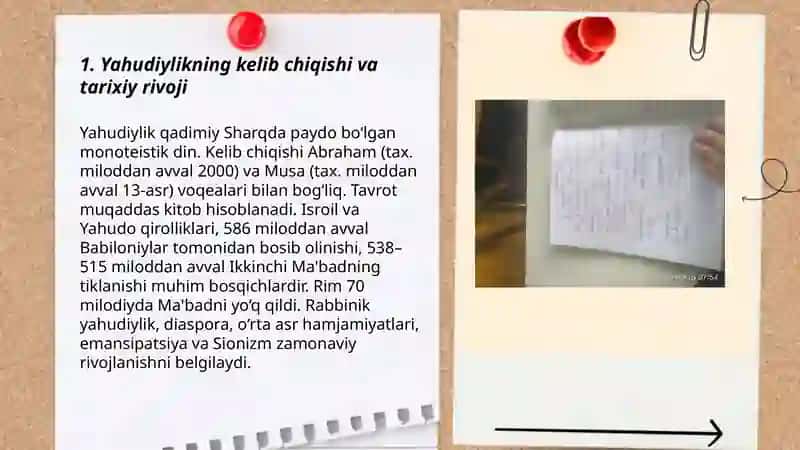 1. Yahudiylikning kelib chiqishi va
tarixiy rivoji
Yahudiylik qadimiy Sharqda paydo bo'lgan
monoteistik din. Kelib chiqishi Abraham (tax.
miloddan avval 2000) va Musa (tax. miloddan
avval 13-asr) voqealari bilan bog'liq. Tavrot
muqaddas kitob hisoblanadi. Isroil va
Yahudo qirolliklari, 586 miloddan avval
Babiloniylar tomonidan bosib olinishi, 538–
515 miloddan avval Ikkinchi Ma'badning
tiklanishi muhim bosqichlardir. Rim 70
milodiyda Ma'badni yo'q qildi. Rabbinik
yahudiylik, diaspora, o'rta asr hamjamiyatlari,
emansipatsiya va Sionizm zamonaviy
rivojlanishni belgilaydi.
07:54